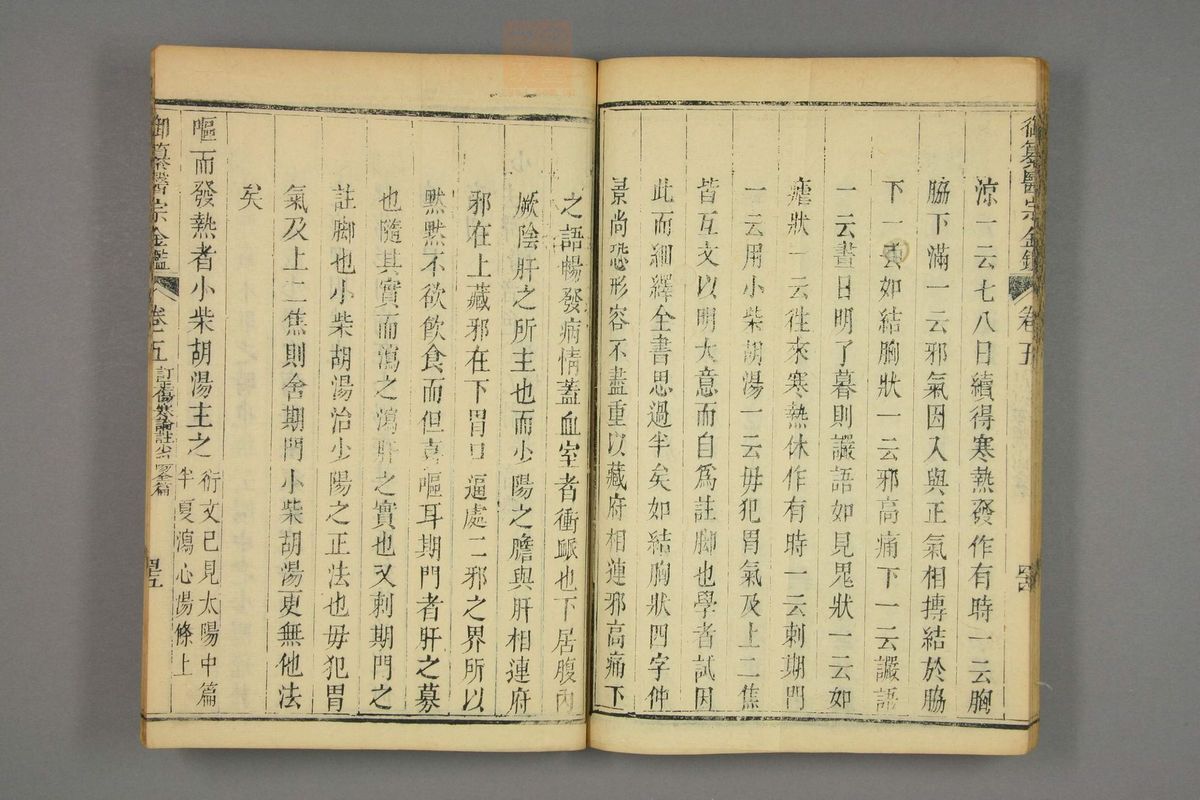 御纂醫宗金鑑 卷五
涼一云七八日續得寒熱發作有時一云胸
脇下滿一云邪氣因入與正氣相摶結於脇
下一云如結胸狀一云邪高痛下一云讝語
一云晝日明了暮則讝語如見鬼狀一云如
瘧狀一云往來寒熱休作有時一云刺期門
一云用小柴胡湯一云毋犯胃氣及上二焦
皆互文以明大意而自爲註脚也學者試因
此而細繹全書思過半矣如結胸狀四字仲
景尚恐形容不盡重以藏府相連邪高痛下
之語暢發病情蓋血室者衝脈也下居腹內
厥陰肝之所主也而少陽之膽與肝相連府
邪在上藏邪在下胃口逼處二邪之界所以
默默不欲飮食而但喜嘔耳期門者肝之募
也隨其實而瀉之瀉肝之實也又刺期門之
註脚也小柴胡湯治少陽之正法也毋犯胃
氣及上二焦則舍期門小柴胡湯更無他法
矣
嘔而發熱者小柴胡湯主之 衍文已見太陽中篇
半夏瀉心湯條上
御纂醫宗金鑑 卷五 訂正傷寒論註少陽全篇 四五